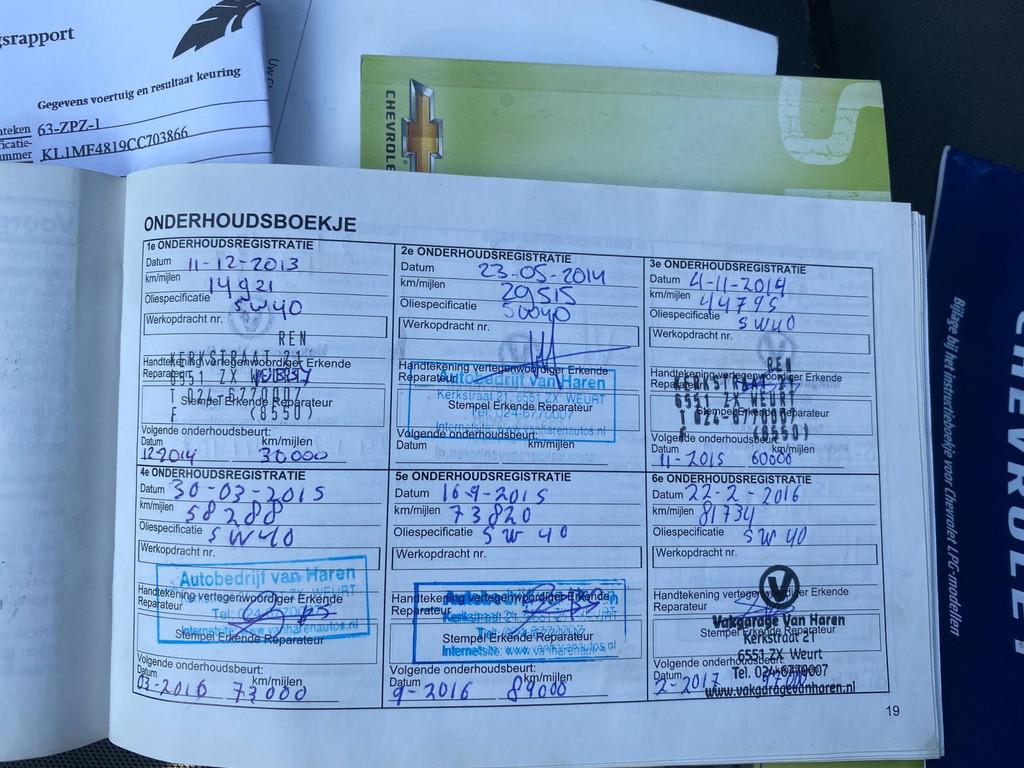 gsrapport
Gegevens voertuig en resultaat keuring
63-ZPZ-1
KL1MF4819CC703866
CHEVROLE
ONDERHOUDSBOEKJE
1e ONDERHOUDSREGISTRATIE
Datum 11-12-2013
km/mijlen 14921
Oliespecificatie 5W40
Werkopdracht nr.
REN
KERKSTRAAT 21
Handtekening vertegenwoordiger Erkende
Reparateur
6551 ZX WEURT
Stempel Erkende Reparateur
(8550)
Volgende onderhoudsbeurt:
Datum km/mijlen
12-2014 30.000
2e ONDERHOUDSREGISTRATIE
Datum 23-05-2014
km/mijlen 29515
Oliespecificatie 5W40
Werkopdracht nr.
Handtekening vertegenwoordiger Erkende
Reparateur
Autobedrijf van Haren
Kerkstraat 21, 6551 ZX WEURT
Stempel Erkende Reparateur
Tel: 024-6770007
Internetsite: www.vanharenautos.nl
Volgende onderhoudsbeurt:
Datum km/mijlen
3e ONDERHOUDSREGISTRATIE
Datum 4-11-2014
km/mijlen 44795
Oliespecificatie 5W40
Werkopdracht nr.
REN
Handtekening vertegenwoordiger Erkende
Reparateur
KERKSTRAAT 21
6551 ZX WEURT
Stempel Erkende Reparateur
T 024-6770007
F (8550)
Volgende onderhoudsbeurt:
Datum km/mijlen
11-2015 60000
4e ONDERHOUDSREGISTRATIE
Datum 30-03-2015
km/mijlen 58288
Oliespecificatie 5W40
Werkopdracht nr.
Autobedrijf van Haren
Handtekening vertegenwoordiger Erkende
Reparateur
Stempel Erkende Reparateur
Internetsite: www.vanharenautos.nl
Volgende onderhoudsbeurt:
Datum km/mijlen
03-2016 73000
5e ONDERHOUDSREGISTRATIE
Datum 16-9-2015
km/mijlen 73820
Oliespecificatie 5W40
Werkopdracht nr.
Handtekening vertegenwoordiger Erkende
Reparateur
Stempel Erkende Reparateur
Internetsite: www.vanharenautos.nl
Volgende onderhoudsbeurt:
Datum km/mijlen
9-2016 89000
6e ONDERHOUDSREGISTRATIE
Datum 22-2-2016
km/mijlen 81734
Oliespecificatie 5W40
Werkopdracht nr.
V
Handtekening vertegenwoordiger Erkende
Reparateur
Vakgarage Van Haren
Stempel Erkende Reparateur
Kerkstraat 21
6551 ZX Weurt
Volgende onderhoudsbeurt:
Tel. 024-6770007
Datum km/mijlen
2-2017
www.vakgaragevanharen.nl
19
Bijlage bij het instructieboekje voor Chevrolet LPG-modellen
CHEVROLET